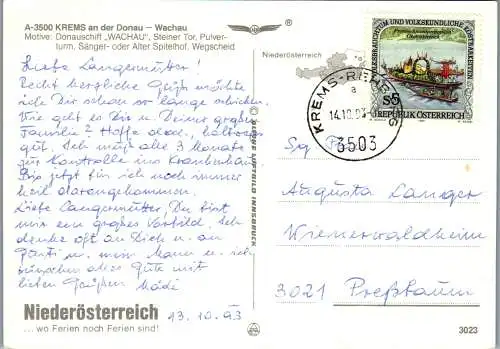 A-3500 KREMS an der Donau — Wachau
Motive: Donauschiff „WACHAU", Steiner Tor, Pulver-
turm, Sänger- oder Alter Spitelhof, Wegscheid
Niederösterreich
VOLKSBRAUCHTUM UND VOLKSKUNDLICHE KOSTBARKEITEN
Oberösterreich
S5
REPUBLIK ÖSTERREICH
KREMS-REHBERG
a
14.10.93
3503
Liebe Langermutter!
Recht herzliche Grüße möchte
ich Dir schon so lange schicken.
Wie geht es Dir u. Deiner großen
Familie? Hoffe doch, halbwegs
gut. Ich muß alle 3 Monate
zur Kontrolle ins Krankenhaus
Bis jetzt für ich noch immer
heil davongekommen.
Liebe Langermutter, Du bist
mir ein großes Vorbild. Ich
denke oft an Dich u. an
u. mein Mann u. ich
wünschen alles Gute mit
lieben Grüßen
LUFTBILD INNSBRUCK
Augusta Langer
Wienerwaldheim
3021 Preßbaum
Niederösterreich
... wo Ferien noch Ferien sind!
13.10.93
3023